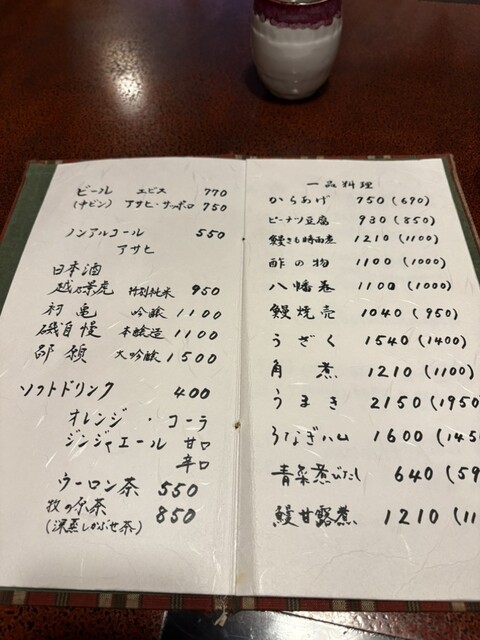 ビール エビス 770
(中ビン) アサヒ・サッポロ 750
ノンアルコール 550
アサヒ
日本酒
越乃景虎 特別純米 950
初亀 吟醸 1100
磯自慢 本醸造 1100
大吟醸 1500
ソフトドリンク 400
オレンジ・コーラ
ジンジャエール 甘口
辛口
ウーロン茶 550
牧の原茶 850
(深蒸しかぶせ茶)
一品料理
からあげ 750(690)
ピーナツ豆腐 930(850)
鰻きも時雨煮 1210(1100)
酢の物 1100(1000)
八幡巻 1100(1000)
鰻焼売 1040(950)
うざく 1540(1400)
角煮 1210(1100)
うまき 2150(1950
うなぎハム 1600(145
青菜煮びたし 640(59
鰻甘露煮 1210(11